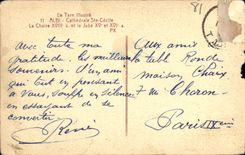 Le Tarn Illustré
11. ALBI - Cathédrale Ste-Cécile
La Chaire XVIIIe s. et le Jubé XVe et XVIe s.
PX
81
avec toute ma
gratitude, les meilleurs
souvenirs d'un ami
qui tout en pensant
à vous, souffre en silence
en essayant de se
convertir
René
Aux amis
la table Ronde
maison Chaix
7 rue
Paris IXe